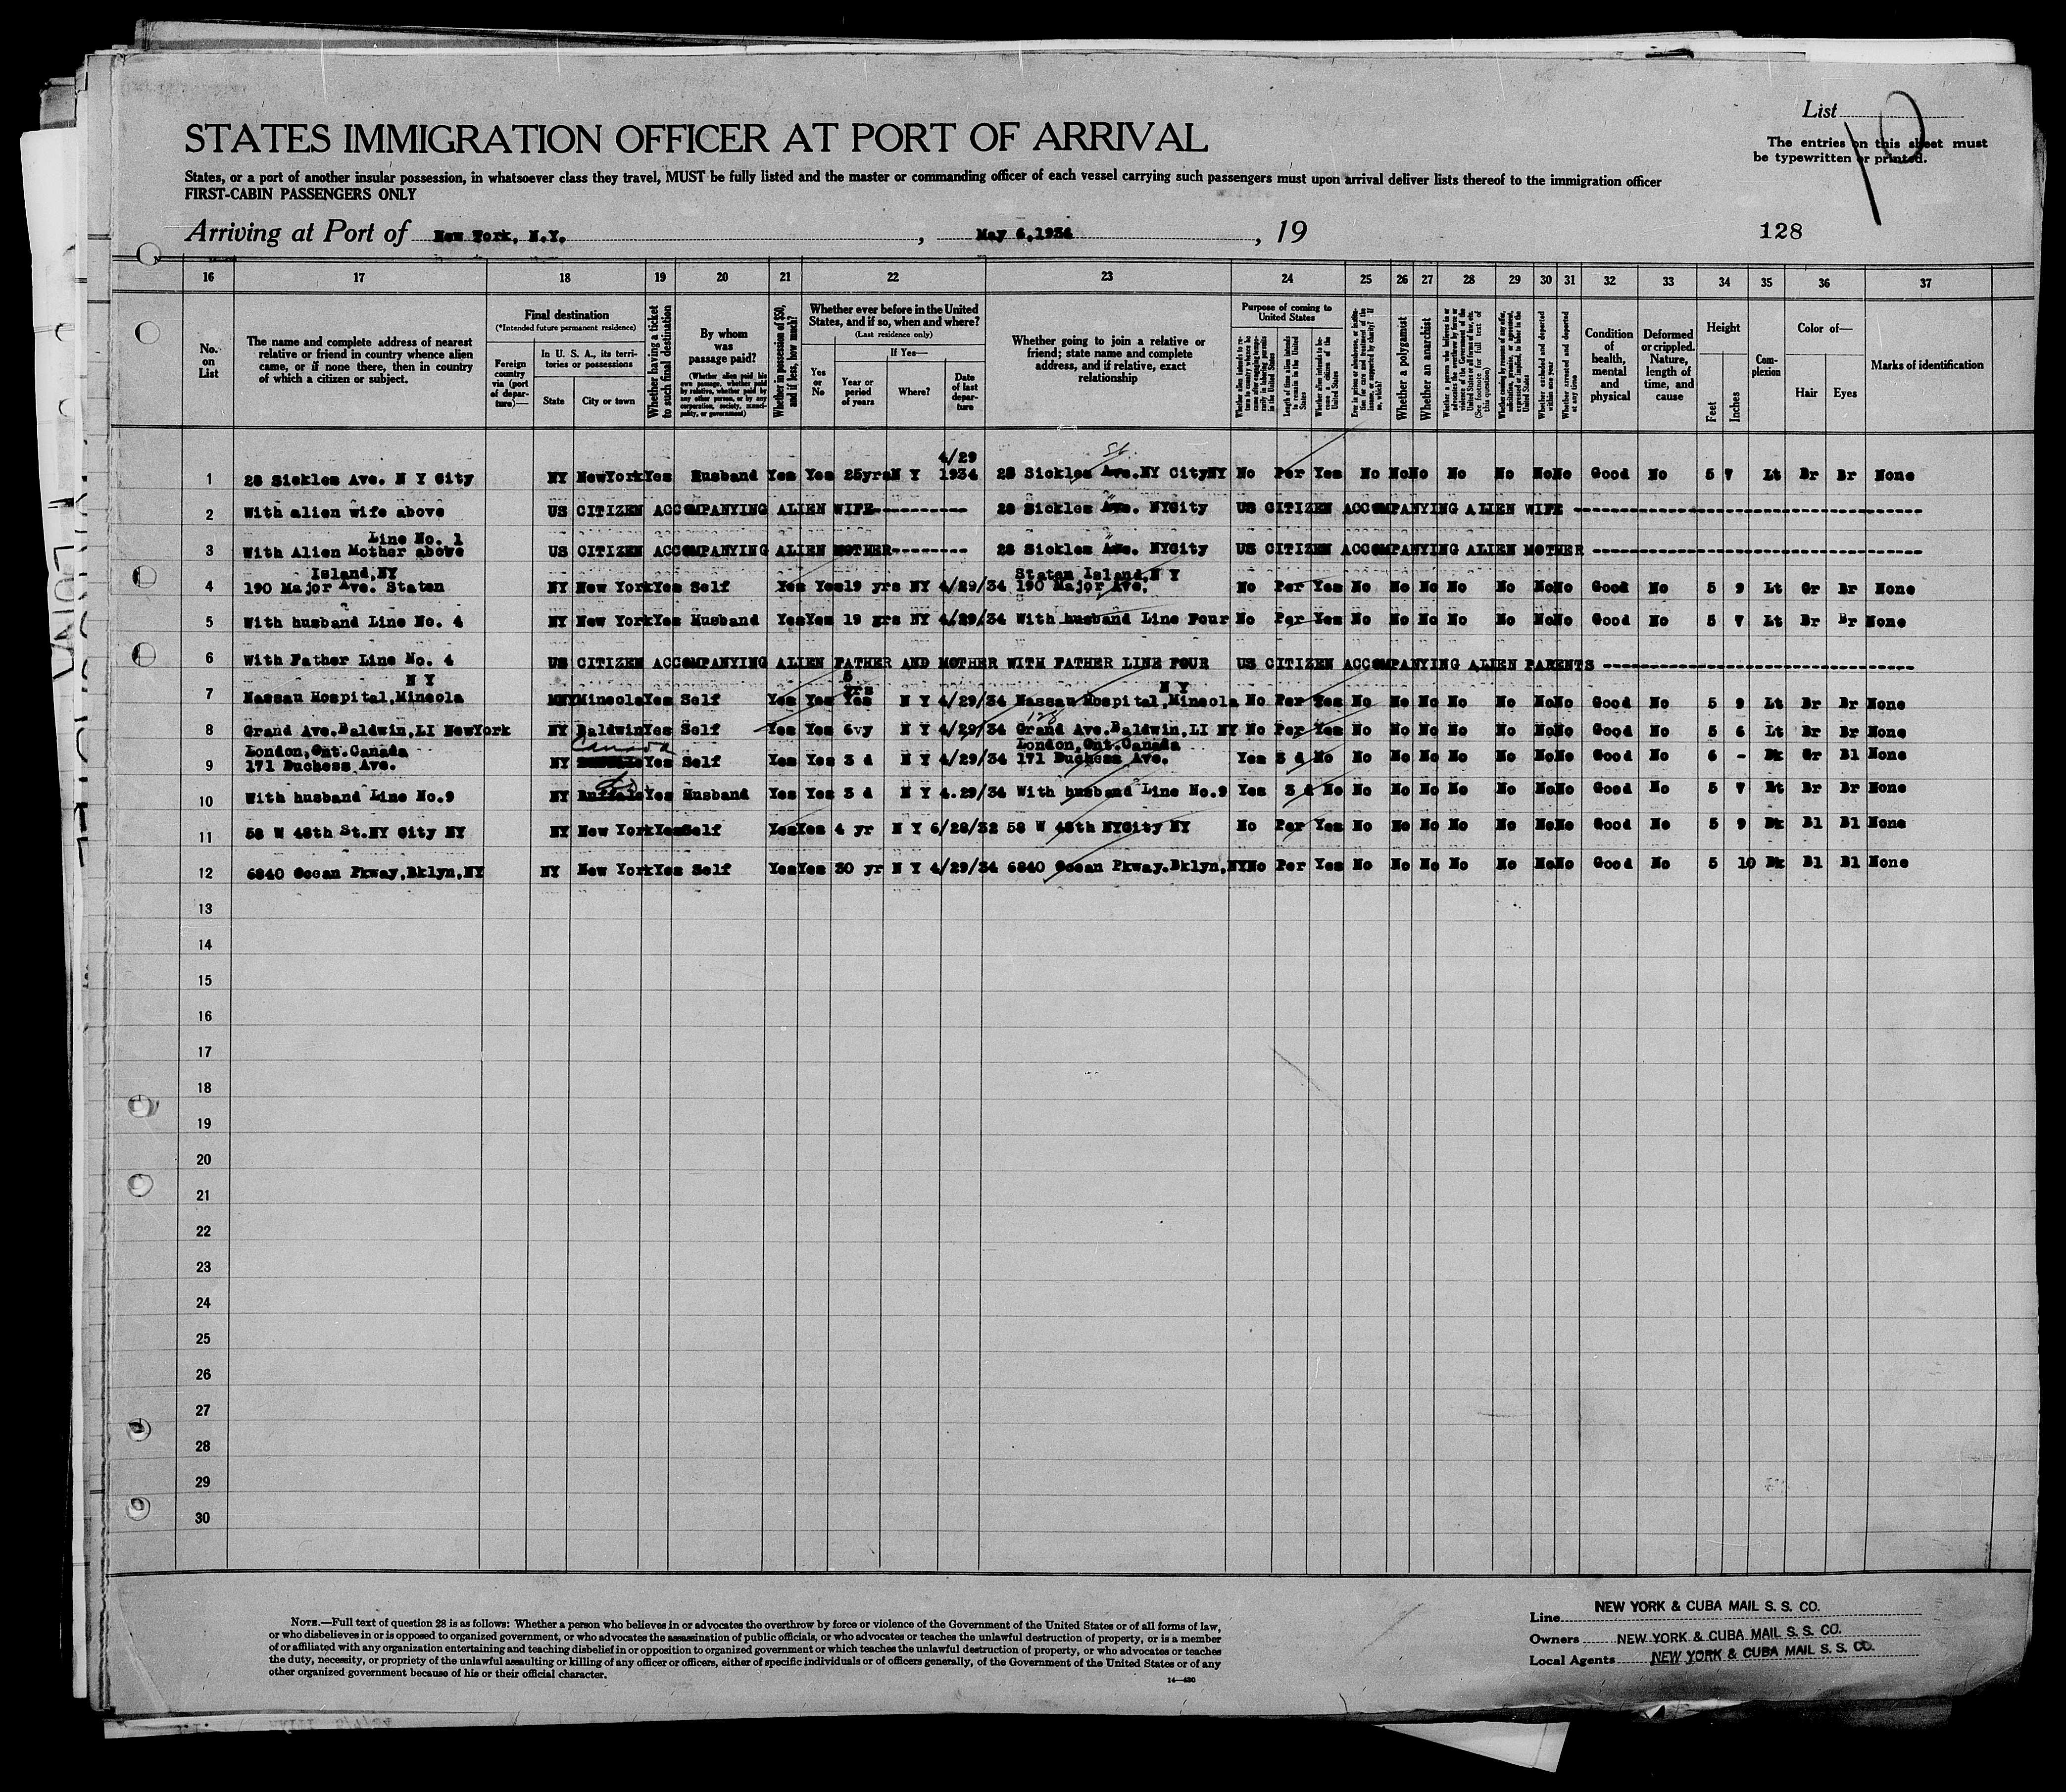 List 10
The entries on this sheet must
be typewritten or printed.
STATES IMMIGRATION OFFICER AT PORT OF ARRIVAL
States, or a port of another insular possession, in whatsoever class they travel, MUST be fully listed and the master or commanding officer of each vessel carrying such passengers must upon arrival deliver lists thereof to the immigration officer
FIRST-CABIN PASSENGERS ONLY
Arriving at Port of New York, N.Y., May 6, 1934, 19
128
16 17 18 19 20 21 22 23 24 25 26 27 28 29 30 31 32 33 34 35 36 37
No. on List
The name and complete address of nearest relative or friend in country whence alien came, or if none there, then in country of which a citizen or subject.
Final destination
(*Intended future permanent residence)
Foreign country via (port of departure)—
In U. S. A., its territories or possessions
State
City or town
Whether having a ticket to such final destination
By whom was passage paid?
(Whether alien paid his own passage, whether paid by relative, whether paid by any other person, or by any corporation, society, municipality, or government)
Whether in possession of $50, and if less, how much?
Whether ever before in the United States, and if so, when and where?
(Last residence only)
Yes or No
If Yes—
Year or period of years
Where?
Date of last departure
Whether going to join a relative or friend; state name and complete address, and if relative, exact relationship
Purpose of coming to United States
Length of time alien intends to remain in the United States
Whether alien intends to become a citizen of the United States
Whether a polygamist
Whether an anarchist
Whether excluded and deported within one year
Whether arrested and deported at any time
Condition of health, mental and physical
Deformed or crippled. Nature, length of time, and cause
Height
Feet
Inches
Complexion
Color of—
Hair
Eyes
Marks of identification
4/29
St
1 28 Sickles Ave. N Y City NY NewYork Yes Husband Yes Yes 25yrs N Y 1934 28 Sickles Ave. NY City NY No Per Yes No No No No No No No Good No 5 7 Lt Br Br None
2 With alien wife above US CITIZEN ACCOMPANYING ALIEN WIFE---------- 28 Sickles Ave. NYCity US CITIZEN ACCOMPANYING ALIEN WIFE ----------
Line No. 1
3 With Alien Mother above US CITIZEN ACCOMPANYING ALIEN MOTHER-------- 28 Sickles Ave. NYCity US CITIZEN ACCOMPANYING ALIEN MOTHER ----------
Island, NY Staten Island, N Y
4 190 Major Ave. Staten NY New York Yes Self Yes Yes 19 yrs NY 4/29/34 190 Major Ave. No Per Yes No No No No No No No Good No 5 9 Lt Gr Br None
5 With husband Line No. 4 NY New York Yes Husband Yes Yes 19 yrs NY 4/29/34 With husband Line Four No Per Yes No No No No No No No Good No 5 7 Lt Br Br None
6 With Father Line No. 4 US CITIZEN ACCOMPANYING ALIEN FATHER AND MOTHER WITH FATHER LINE FOUR US CITIZEN ACCOMPANYING ALIEN PARENTS ----------
N Y 5 yrs N Y
7 Nassau Hospital, Mineola NY Mineola Yes Self Yes Yes Yes N Y 4/29/34 Nassau Hospital, Mineola No Per Yes No No No No No No No Good No 5 9 Lt Br Br None
128
8 Grand Ave. Baldwin, LI NewYork NY Baldwin Yes Self Yes Yes 6vy N Y 4/29/34 Grand Ave. Baldwin, LI NY No Per Yes No No No No No No No Good No 5 6 Lt Br Br None
London, Ont. Canada Canada London, Ont. Canada
9 171 Duchess Ave. NY Yes Self Yes Yes 3 d N Y 4/29/34 171 Duchess Ave. Yes 3 d No No No No No No No No Good No 6 - Dk Gr Bl None
do
10 With husband Line No.9 NY Buffalo Yes Husband Yes Yes 3 d N Y 4.29/34 With husband Line No.9 Yes 3 d No No No No No No No No Good No 5 7 Lt Br Br None
11 58 W 48th St. NY City NY NY New York Yes Self Yes Yes 4 yr N Y 6/28/32 58 W 48th NYCity NY No Per Yes No No No No No No No Good No 5 9 Dk Bl Bl None
12 6840 Ocean Pkway, Bklyn, NY NY New York Yes Self Yes Yes 30 yr N Y 4/29/34 6840 Ocean Pkway. Bklyn, NY No Per Yes No No No No No No No Good No 5 10 Dk Bl Bl None
13
14
15
16
17
18
19
20
21
22
23
24
25
26
27
28
29
30
NOTE.—Full text of question 28 is as follows: Whether a person who believes in or advocates the overthrow by force or violence of the Government of the United States or of all forms of law,
or who disbelieves in or is opposed to organized government, or who advocates the assassination of public officials, or who advocates or teaches the unlawful destruction of property, or is a member
of or affiliated with any organization entertaining and teaching disbelief in or opposition to organized government or which teaches the unlawful destruction of property, or who advocates or teaches
the duty, necessity, or propriety of the unlawful assaulting or killing of any officer or officers, either of specific individuals or of officers generally, of the Government of the United States or of any
other organized government because of his or their official character.
14—430
Line NEW YORK & CUBA MAIL S. S. CO.
Owners NEW YORK & CUBA MAIL S. S. CO.
Local Agents NEW YORK & CUBA MAIL S. S. CO.